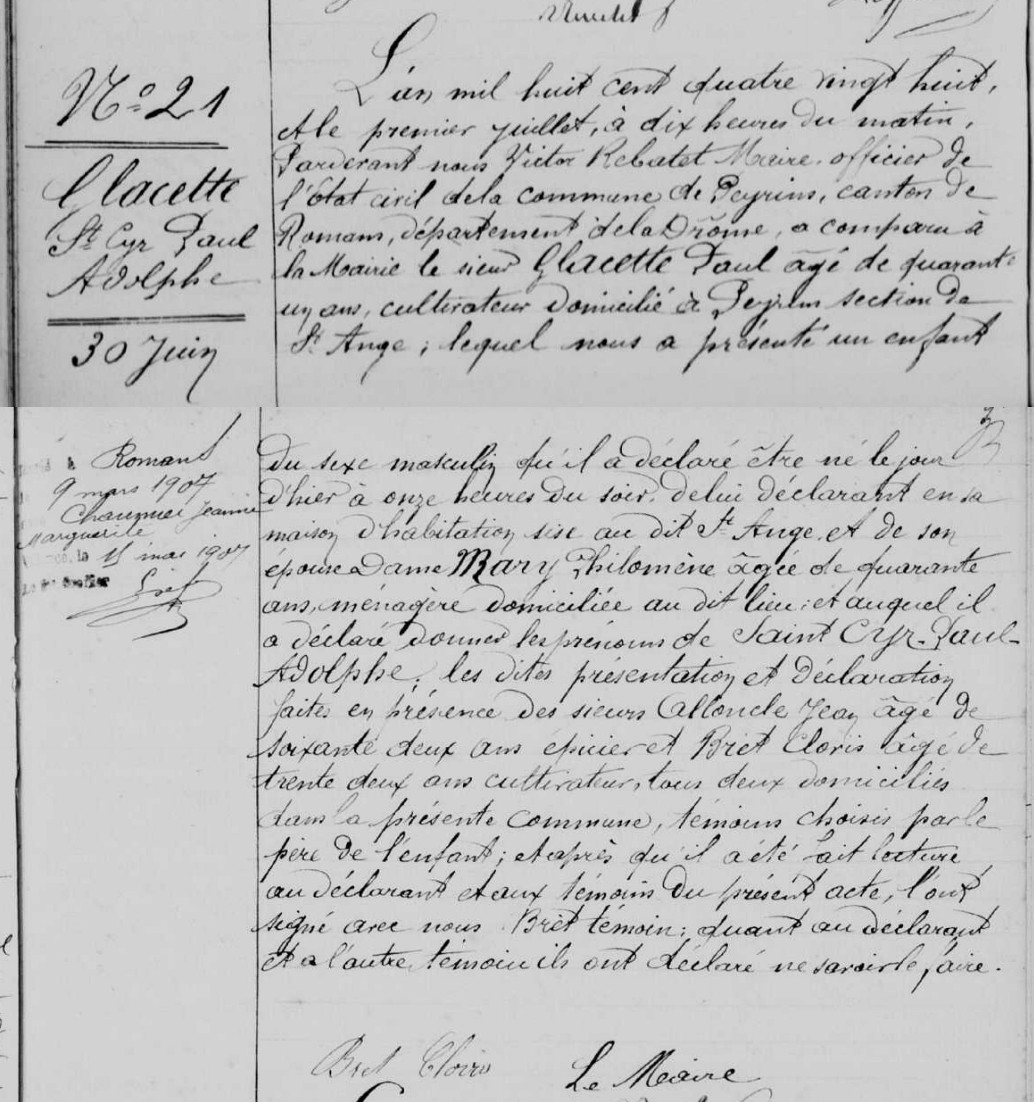 N° 21
Glacette
St Cyr Paul
Adolphe
30 Juin
L'an mil huit cent quatre vingt huit,
et le premier juillet, à dix heures du matin,
Pardevant nous Victor Rebatet Maire, officier de
l'État civil de la commune de Peyrins, canton de
Romans, département de la Drôme, a comparu à
la Mairie le sieur Glacette Paul âgé de quarante
un ans, cultivateur domicilié à Peyrins section de
St Ange ; lequel nous a présenté un enfant
à Romans
9 mars 1907
Jeanne
Marguerite
le 15 mai 1907
du sexe masculin qu'il a déclaré être né le jour
d'hier à onze heures du soir, de lui déclarant en sa
maison d'habitation sise au dit St Ange, et de son
épouse Dame Mary Philomène âgée de quarante
ans, ménagère domiciliée au dit lieu ; et auquel il
a déclaré donner les prénoms de Saint Cyr-Paul-
Adolphe ; les dites présentation et déclaration
faites en présence des sieurs Alloncle Jean âgé de
soixante deux ans épicier et Bret Cloris âgé de
trente deux ans cultivateur, tous deux domiciliés
dans la présente commune, témoins choisis par le
père de l'enfant ; et après qu'il a été fait lecture
au déclarant et aux témoins du présent acte, l'ont
signé avec nous Bret témoin ; quant au déclarant
et a l'autre témoin ils ont déclaré ne savoir le faire.
Bret Cloris Le Maire